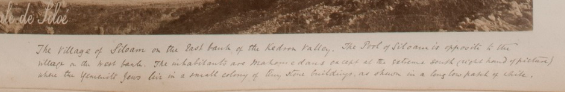 ale de Siloé
The Village of Siloam on the East bank of the Kedron Valley. The Pool of Siloam is opposite to the
village on the West bank. The inhabitants are Mahomedans except at the extreme south (right hand of picture)
where the Yemenite Jews live in a small colony of tiny stone buildings, as shown in a long low patch of white.